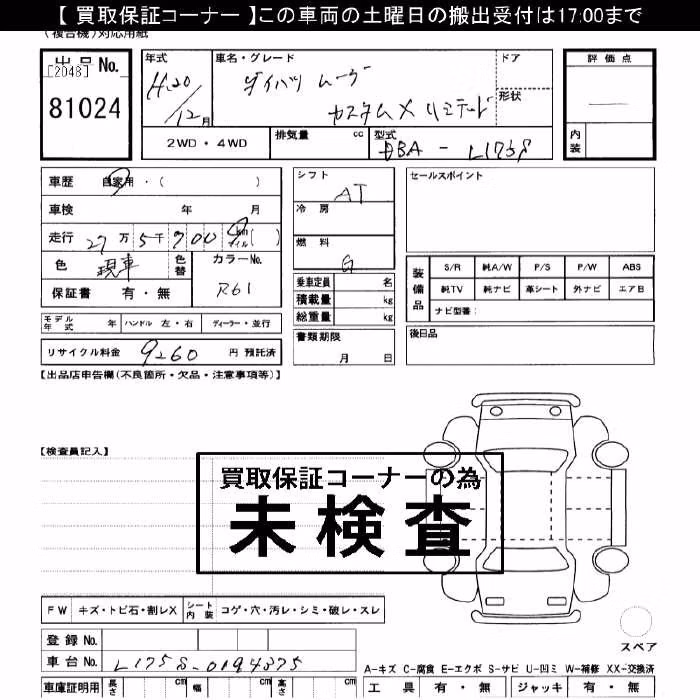 【 買取保証コーナー 】この車両の土曜日の搬出受付は17:00まで
(複合機)対応用紙
出品No.
[2048]
81024
年式
H.20/12月
車名・グレード
ダイハツ ムーヴ
カスタムX リミテード
ドア
形状
2WD・4WD
排気量 cc
型式
DBA - L175S
評価点
内装
車歴 自家用・( )
車検 年 月
走行 27万5千900 km マイル( )
色 現車 色替
カラーNo. R61
保証書 有・無
シフト AT
冷房
燃料 G
乗車定員 名
積載量 kg
総重量 kg
書類期限 月 日
セールスポイント
装備品
S/R 純A/W P/S P/W ABS
純TV 純ナビ 革シート 外ナビ エアB
ナビ型番:
後日品
モデル年式 年 ハンドル 左・右 ディーラー・並行
リサイクル料金 9260 円 預託済
【出品店申告欄(不良箇所・欠品・注意事項等)】
【検査員記入】
買取保証コーナーの為
未検査
FW キズ・トビ石・割レX シート内装 コゲ・穴・汚レ・シミ・破レ・スレ
登録No.
車台No. L175S-0194375
車庫証明用 長さ cm 幅 cm 高さ cm
スペア
A-キズ C-腐食 E-エクボ S-サビ U-凹ミ W-補修 XX-交換済
工具 有・無 ジャッキ 有・無